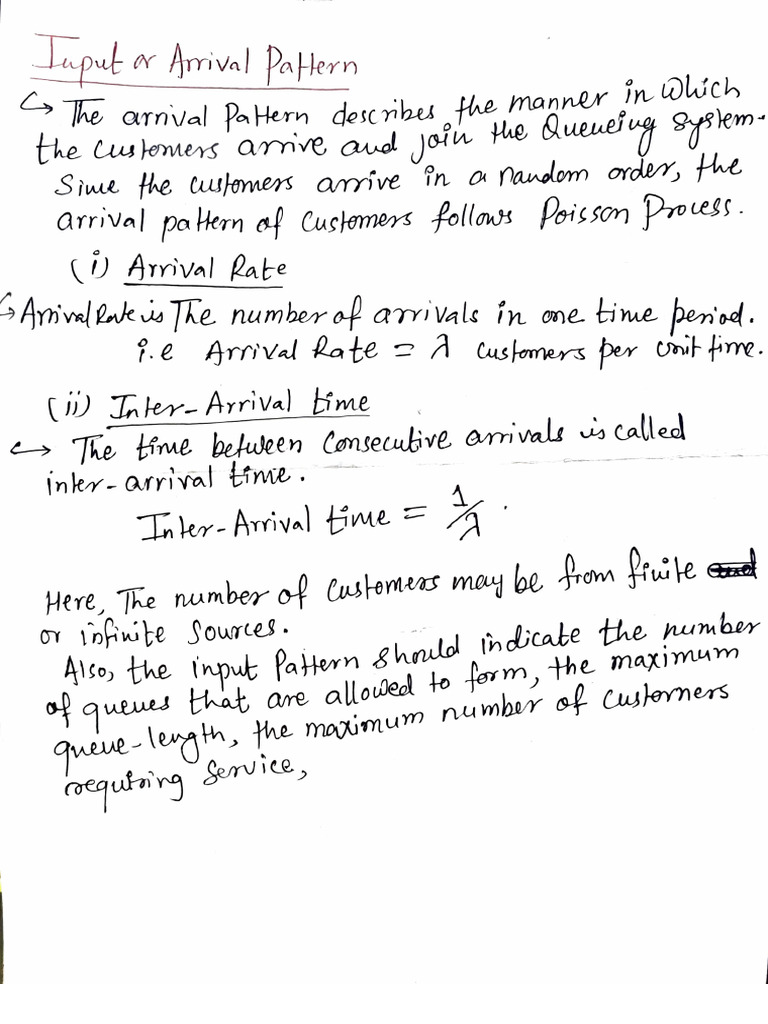 Input or Arrival Pattern
↪ The arrival Pattern describes the manner in which
the customers arrive and join the Queueing system.
Since the customers arrive in a random order, the
arrival pattern of customers follows Poisson Process.
(i) Arrival Rate
↪ Arrival Rate is The number of arrivals in one time period.
i.e Arrival Rate = λ customers per unit time.
(ii) Inter-Arrival time
↪ The time between consecutive arrivals is called
inter-arrival time.
Inter-Arrival time = 1/λ.
Here, The number of customers may be from finite
or infinite sources.
Also, the input Pattern should indicate the number
of queues that are allowed to form, the maximum
queue-length, the maximum number of customers
requiring service,